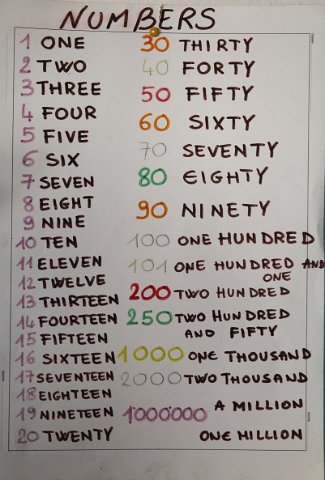 NUMBERS
1 ONE
2 TWO
3 THREE
4 FOUR
5 FIVE
6 SIX
7 SEVEN
8 EIGHT
9 NINE
10 TEN
11 ELEVEN
12 TWELVE
13 THIRTEEN
14 FOURTEEN
15 FIFTEEN
16 SIXTEEN
17 SEVENTEEN
18 EIGHTEEN
19 NINETEEN
20 TWENTY
30 THIRTY
40 FORTY
50 FIFTY
60 SIXTY
70 SEVENTY
80 EIGHTY
90 NINETY
100 ONE HUNDRED
101 ONE HUNDRED AND
ONE
200 TWO HUNDRED
250 TWO HUNDRED
AND FIFTY
1000 ONE THOUSAND
2000 TWO THOUSAND
1'000'000 A MILLION
ONE MILLION